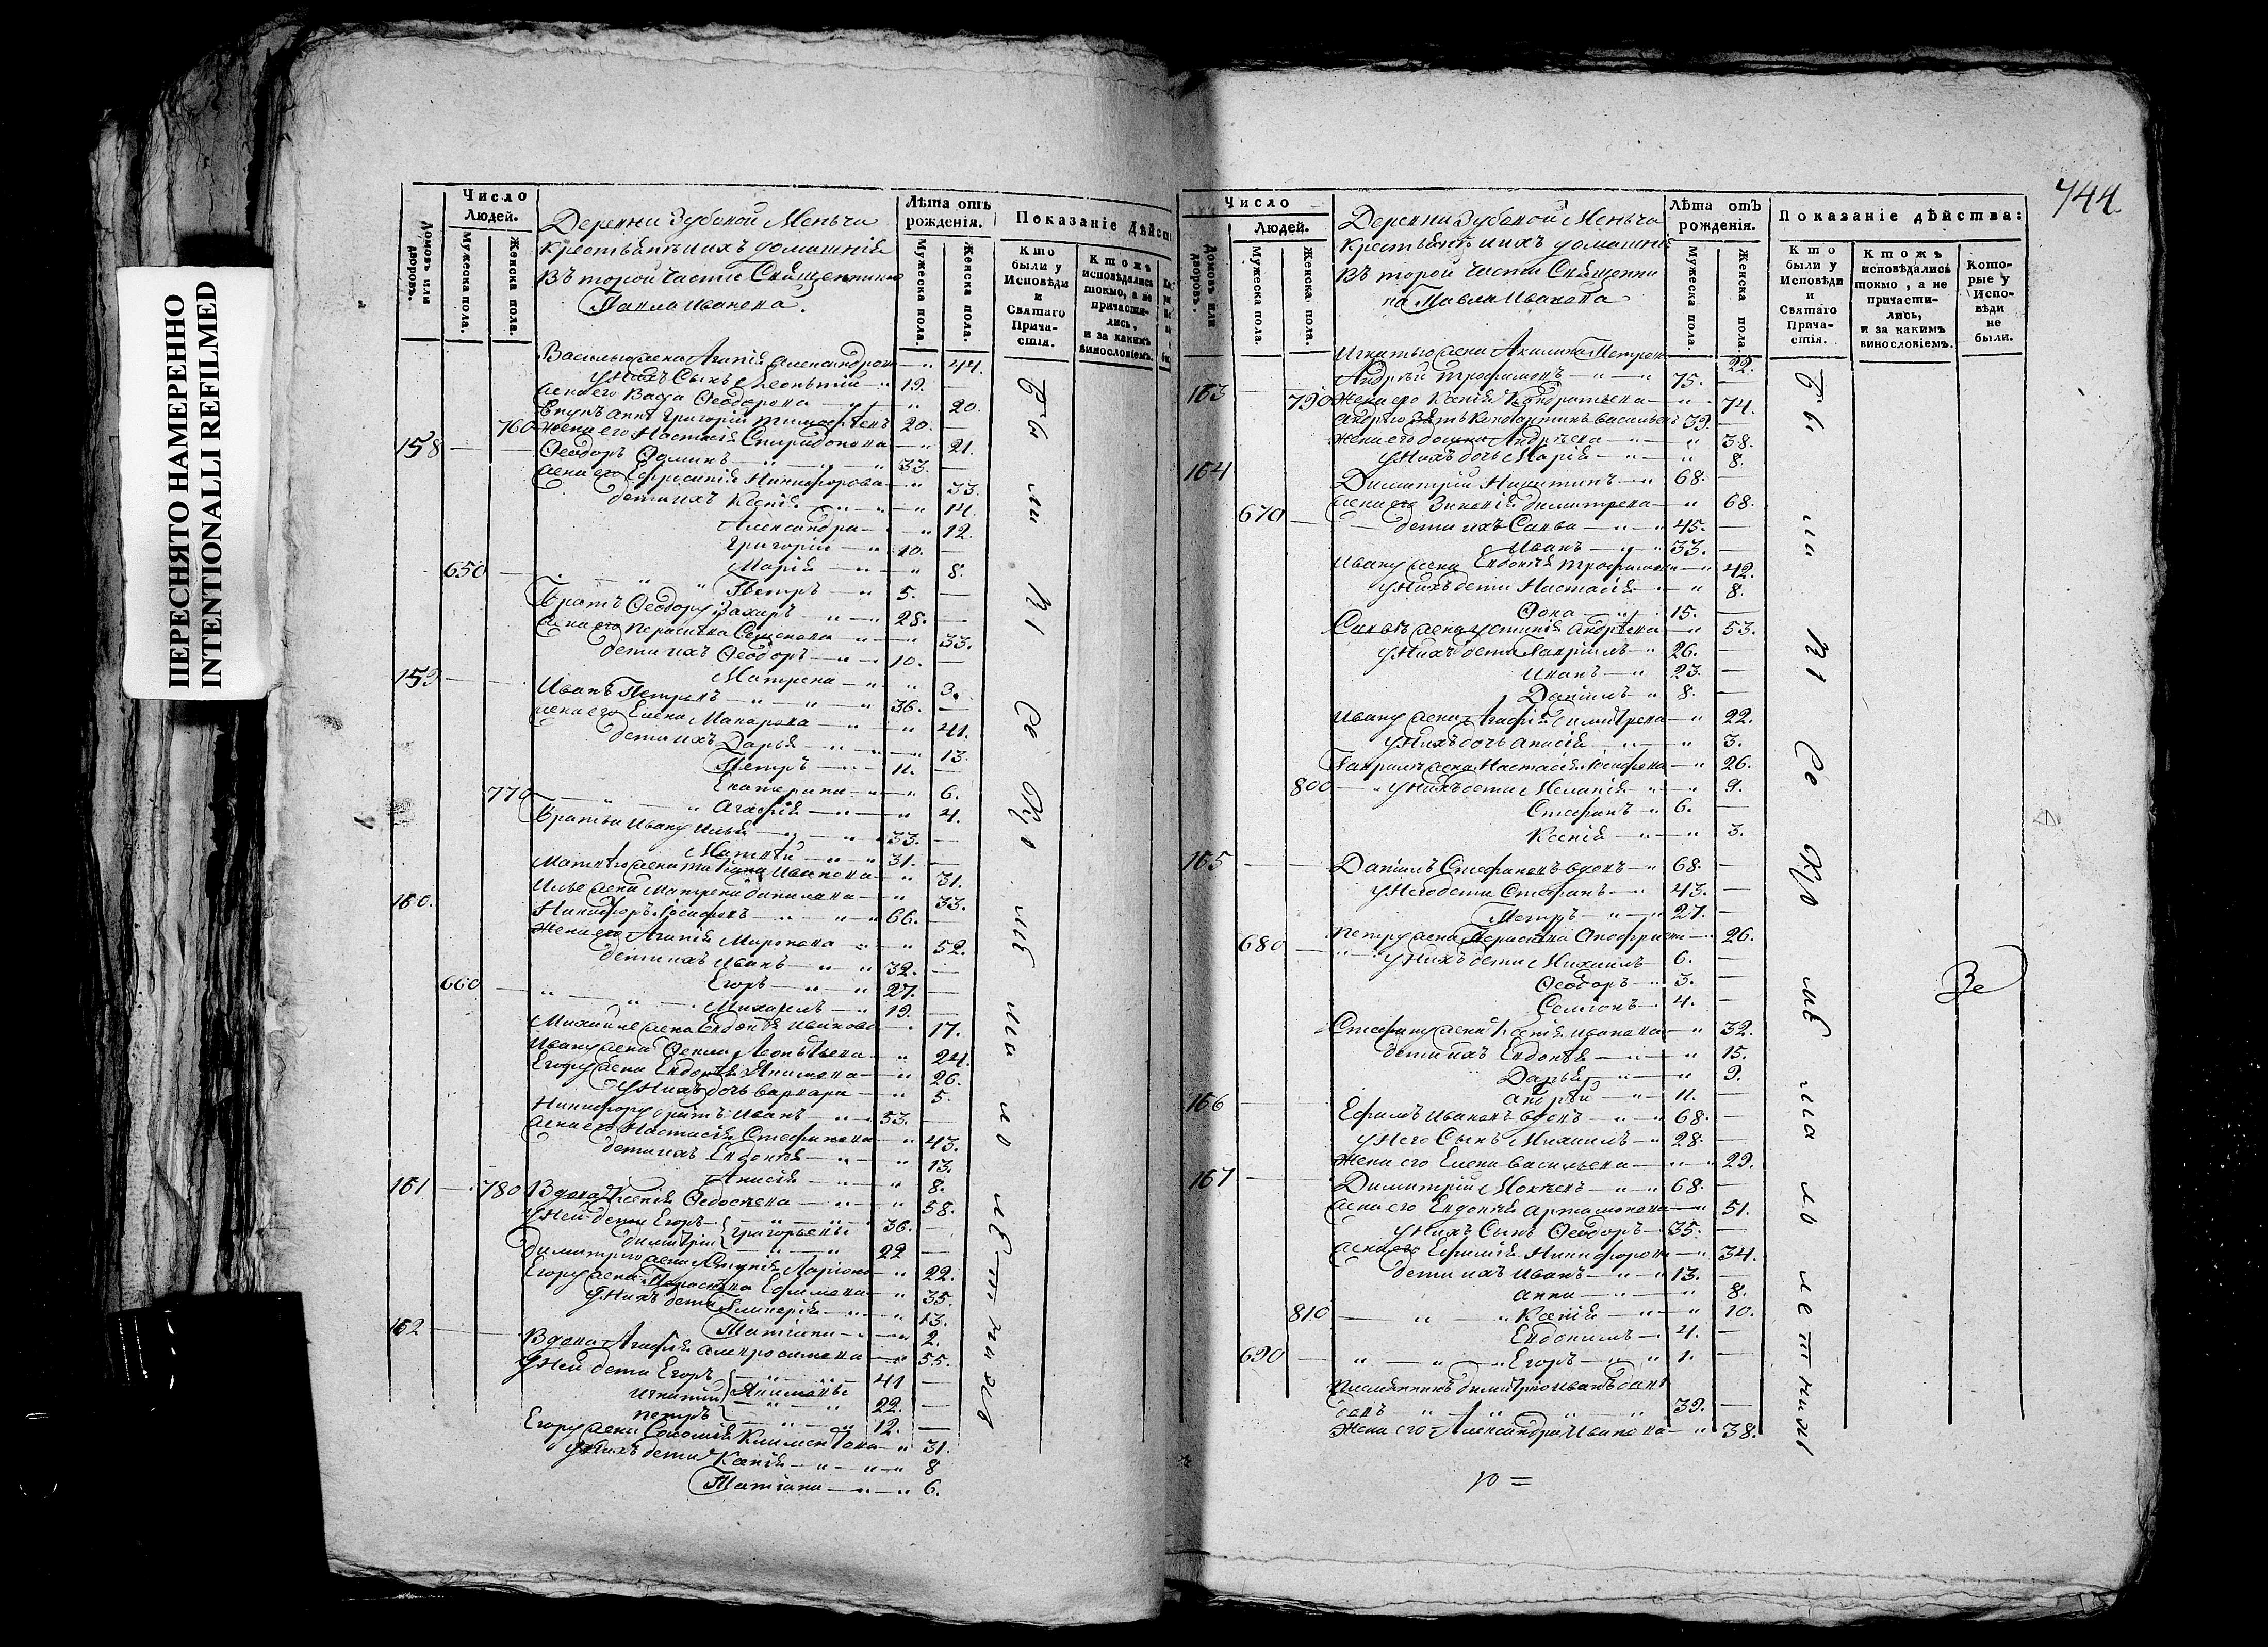 ПЕРЕСНЯТО НАМЕРЕННО
INTENTIONALLI REFILMED
Число
Людей.
Домовъ или дворовъ.
Мужеска пола.
Женска пола.
Деревни Зубовой
крестьянъ и ихъ домашнiя
въ торой части Священника
Павла Иванова.
Лѣта отъ
рожденiя.
Мужеска пола.
Женска пола.
Показанiе Дѣйст
Кто
были у
Исповѣди
и
Святаго
Прича-
стiя.
Ктожъ
исповѣдались
токмо, а не
причасти-
лись,
и за какимъ
винословiемъ.
жена Агапiя Александрова 44.
у нихъ сынъ Леонтiй 19.
жена его Васса Феодорова 20.
Григорiй 20.
760 жена его Настасiя Спиридонова 21.
158 Феодоръ Фоминъ 33.
жена его Ефросинiя Никифорова 33.
дети ихъ Ксенiя 14.
Александра 12.
Григорiй 10.
650 Марiя 8.
Петръ 5.
Братъ Феодору Захаръ 28.
жена его Параскева Семенова 33.
дети ихъ Феодоръ 10.
Матрена 3.
159 Иванъ Петровъ 36.
жена его Елена Макарова 41.
дети ихъ Дарья 13.
Петръ 11.
Екатерина 6.
770 Агафiя 4.
Братья Ивану Илья 33.
Матвѣй 31.
Матвѣю жена Татiана Иванова 31.
Илье жена Матрена Данилова 33.
160. Никифоръ Иосифовъ 66.
жена его Агапiя Миронова 52.
дети ихъ Иванъ 32.
Егоръ 27.
660 Михаилъ 19.
Михайле жена Евдокiя Иванова 17.
Ивану жена Фекла Леонтьева 24.
Егору жена Евдокiя Якимова 26.
у нихъ дочь Варвара 5.
Никифору братъ Иванъ 53.
жена его Настасiя Стефанова 43.
дети ихъ Евдокiя 13.
Анисiя 8.
161 780 Вдова Ксенiя Федосеева 58.
у ней дети Егоръ Григорьевы 36.
Димитрiй 22
Димитрiю жена Ларiонова 22.
Егору жена Параскева Ефимова 35.
у нихъ дети Гликерiя 13.
Татiана 2.
162 Вдова Агафiя Амвросимова 55.
у ней дети Егоръ Якимовы 41
Игнатiй 22.
Петръ 12.
Егору жена Соломiя Климентова 31.
у нихъ дети Ксенiя 8
Татiана 6.
744.
Число
Людей.
Домовъ или дворовъ.
Мужеска пола.
Женска пола.
Деревни Зубовой
крестьянъ и ихъ домашнiя
въ торой части Священни
ка Павла Иванова
Лѣта отъ
рожденiя.
Мужеска пола.
Женска пола.
Показанiе дѣйства:
Кто
были у
Исповѣди
и
Святаго
Прича-
стiя.
Ктожъ
исповѣдались
токмо, а не
причасти-
лись,
и за какимъ
винословiемъ.
Кото-
рые у
Испо-
вѣди
не
были.
Игнатью жена Акилина Петрова 22.
163 Андрѣй Трофимовъ 75.
790 жена его Ксенiя Кондратьева 74.
Андрею зять Константинъ Васильевъ 39.
жена его Андрѣева 38.
у нихъ дочь Марiя 8.
164 Димитрiй Никитинъ 68.
жена его Зиновiя Димитрева 68.
670 дети ихъ Савва 45.
Иванъ 33.
Ивану жена Евдокiя Трофимова 42.
у нихъ дети Настасiя 8.
Фока 15.
Саввѣ жена Устинiя Андрѣева 53.
у нихъ дети Гаврiилъ 26.
Иванъ 23.
Данiилъ 8.
Ивану жена Агафiя 22.
у нихъ дочь Анисiя 3.
жена Настасiя Иосифова 26.
800 у нихъ дети Меланiя 9.
Стефанъ 6.
Ксенiя 3.
165 Данiилъ Стефановъ вдовъ 68.
у него дети Стефанъ 43.
Петръ 27.
Петру жена Параскева Онофриева 26.
680 у нихъ дети Михаилъ 6.
Феодоръ 3.
Семiонъ 4.
Стефану жена Ксенiя Иванова 32.
дети ихъ Евдокiя 15.
Дарья 9.
Андрѣй 11.
166 Ефимъ Ивановъ вдовъ 68.
у него сынъ Михаилъ 28.
жена его Елена Васильева 29.
167 Димитрiй Мокѣевъ 68.
жена его Евдокiя Артамонова 51.
у нихъ сынъ Феодоръ 35.
жена его Ефимiя Никифорова 34.
дети ихъ Иванъ 13.
Анна 8.
810 Ксенiя 10.
Евдокимъ 4.
690 Егоръ 1.
Племянникъ Димитрiю 39.
жена его Александра Иванова 38.